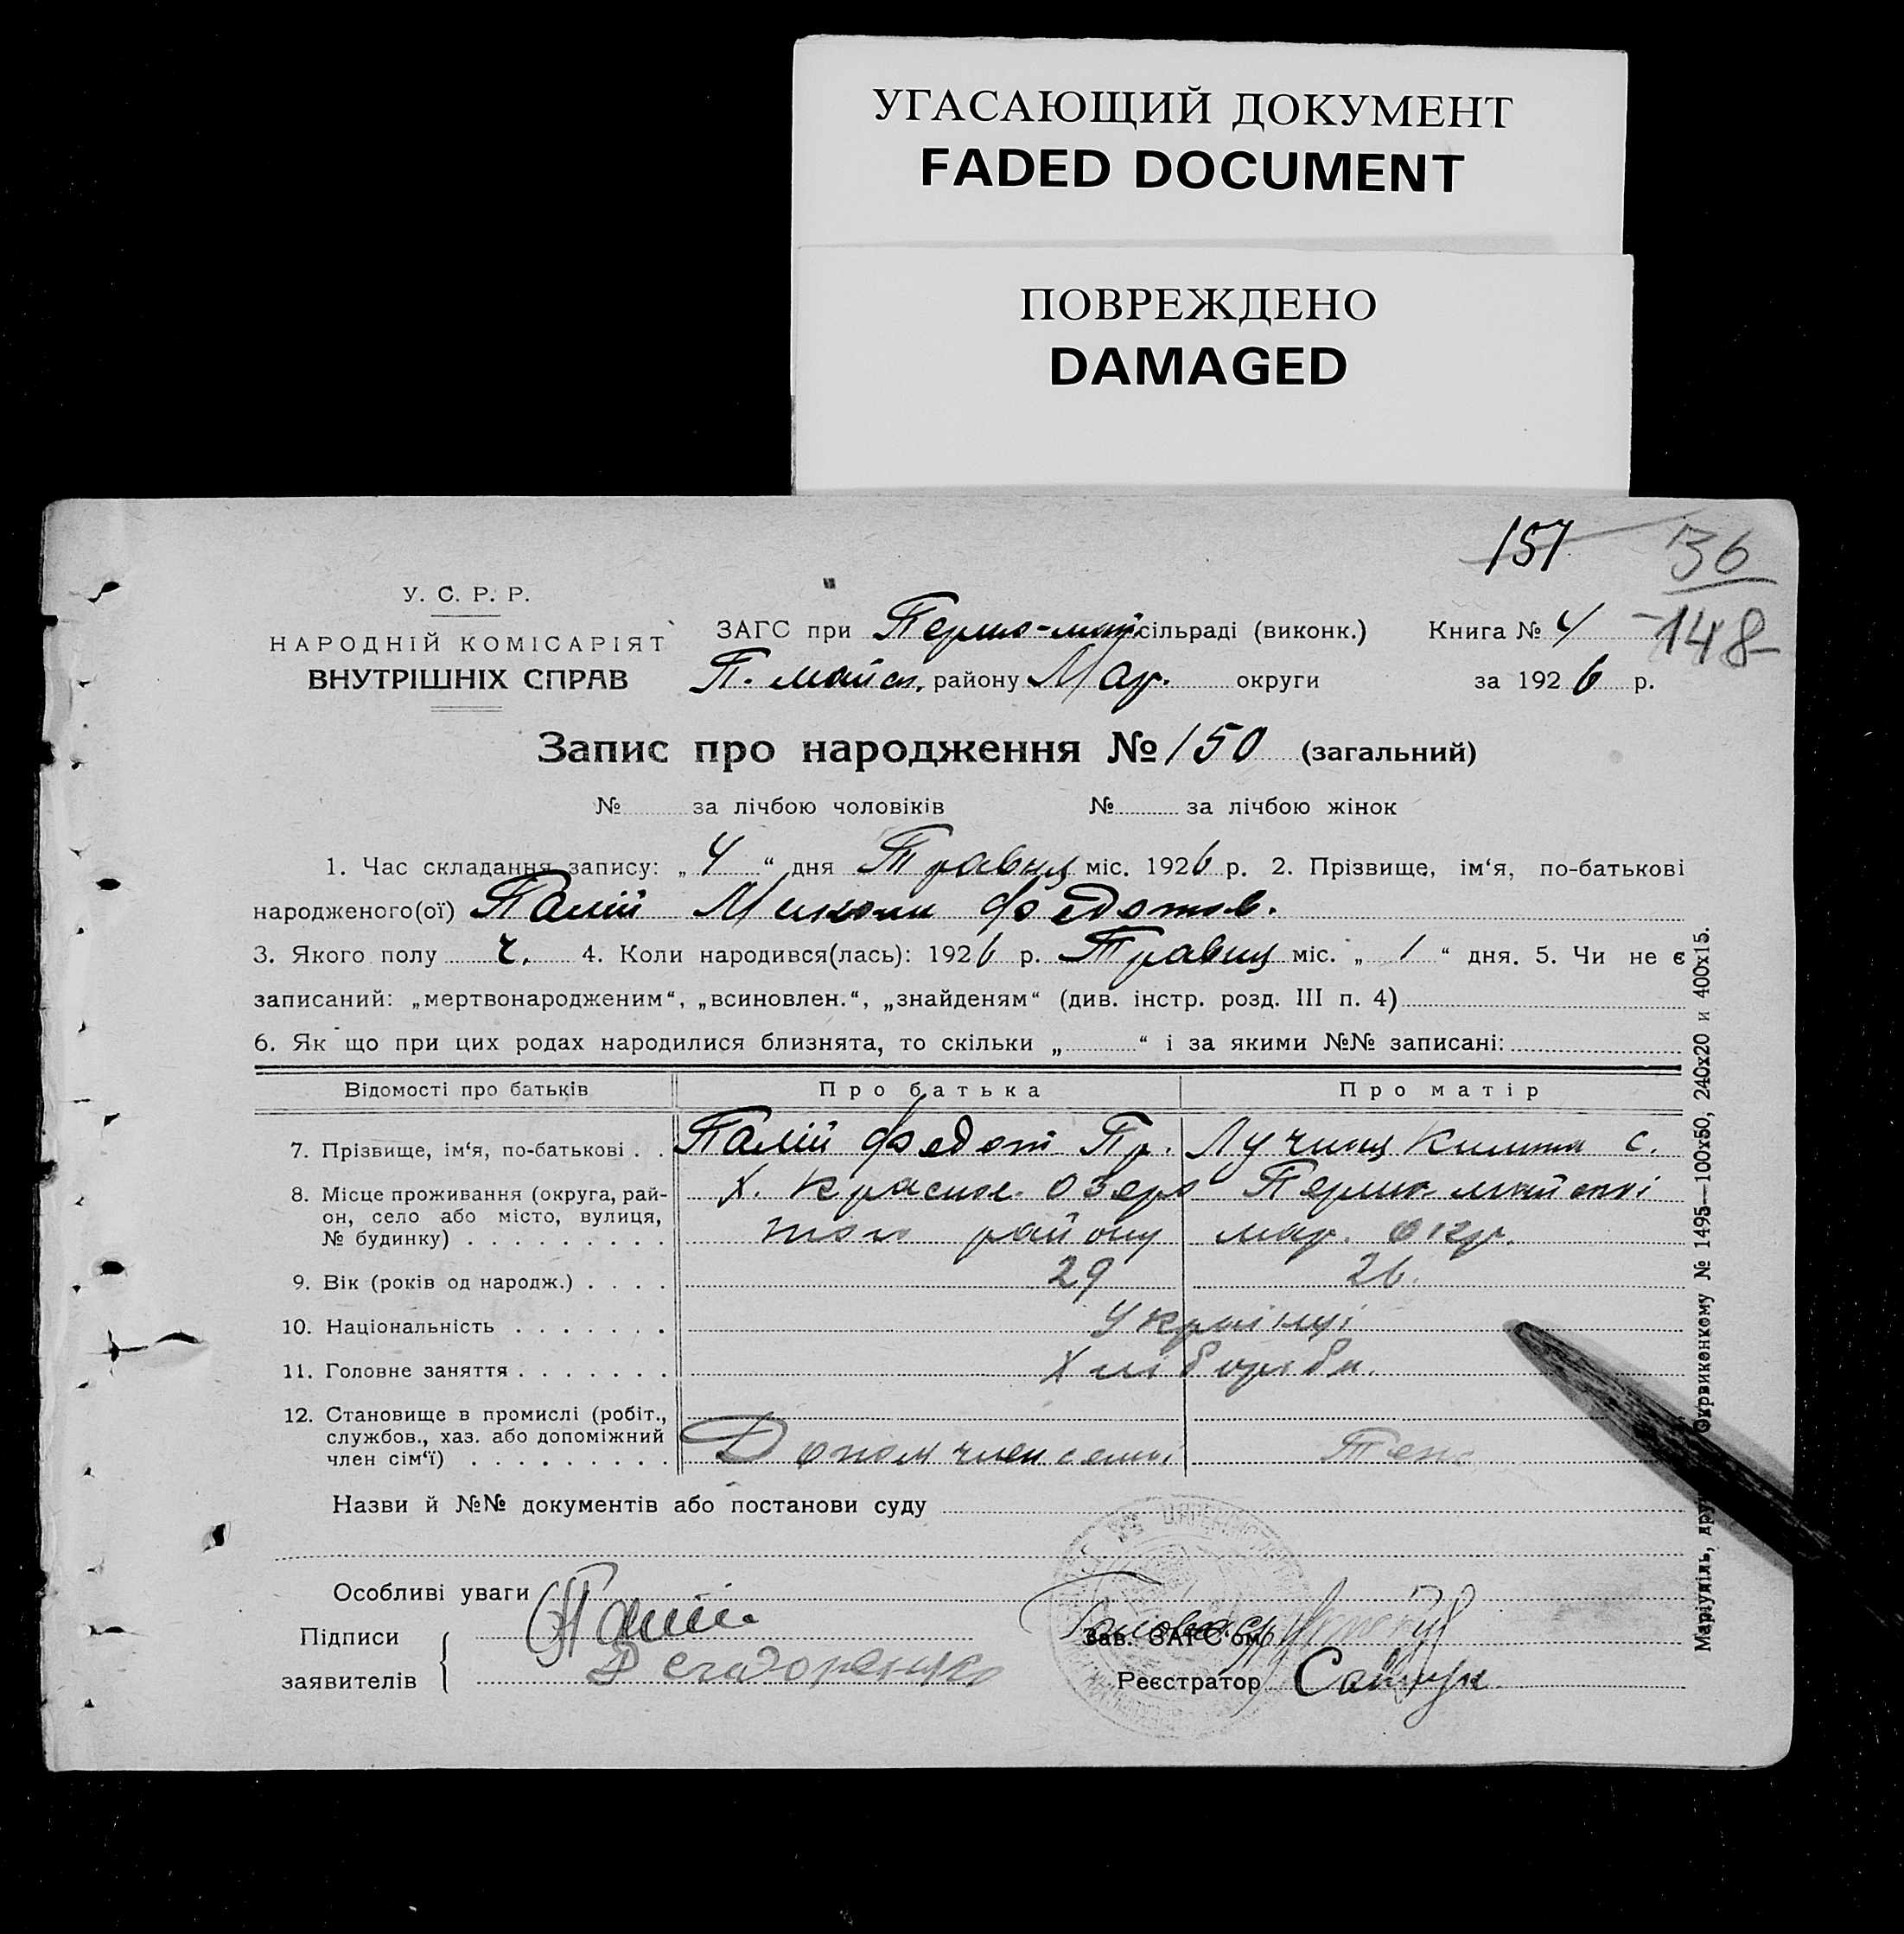 УГАСАЮЩИЙ ДОКУМЕНТ
FADED DOCUMENT
ПОВРЕЖДЕНО
DAMAGED
151 36
148
У. С. Р. Р.
НАРОДНІЙ КОМІСАРІЯТ
ВНУТРІШНІХ СПРАВ
ЗАГС при Перво-май сільраді (виконк.) Книга № 4
П. майск. району Мар. округи за 1926 р.
Запис про народження № 150 (загальний)
№ за лічбою чоловіків № за лічбою жінок
1. Час складання запису: „4“ дня Травня міс. 1926 р. 2. Прізвище, ім‘я, по-батькові
народженого(ої) Палій Микола Федотов.
3. Якого полу ч. 4. Коли народився(лась): 1926 р. Травня міс. „1“ дня. 5. Чи не є
записаний: „мертвонародженим“, „всиновлен.“, „знайденям“ (див. інстр. розд. III п. 4)
6. Як що при цих родах народилися близнята, то скільки „ “ і за якими №№ записані:
Відомості про батьків Про батька Про матір
7. Прізвище, ім‘я, по-батькові . . Палій Федот Пр. С.
8. Місце проживання (округа, рай-
он, село або місто, вулиця,
№ будинку) . . . . . . . . .
Х. Красное Озеро
району мар. окр.
9. Вік (років од народж.) . . . . 29 26.
10. Національність . . . . . . . Українці
11. Головне заняття . . . . . . . Хлібороби.
12. Становище в промислі (робіт.,
службов., хаз. або допоміжний
член сім‘ї) . . . . . . . . .
Допом член семьі
Назви й №№ документів або постанови суду
Особливі уваги
Підписи
заявителів
Палій
Зав. ЗАГС‘ом
Реєстратор
Маріупіль, Окрвиконкому № 1495—100х50, 240х20 и 400х15.